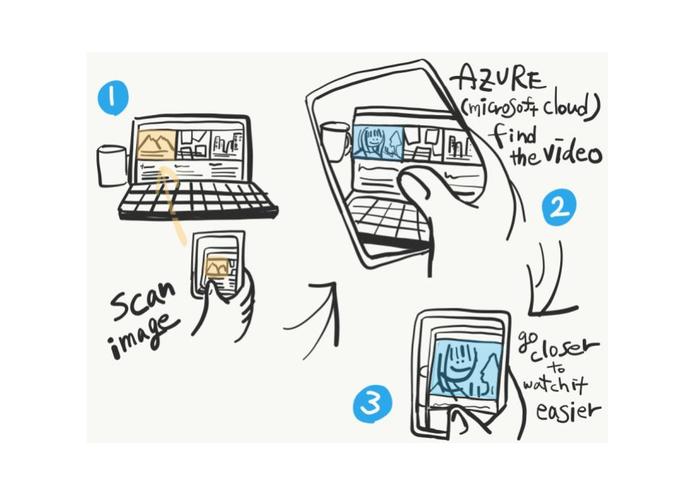 1
Scan
image
AZURE
(microsoft cloud)
find
the video
2
go
closer
to
watch it
easier
3